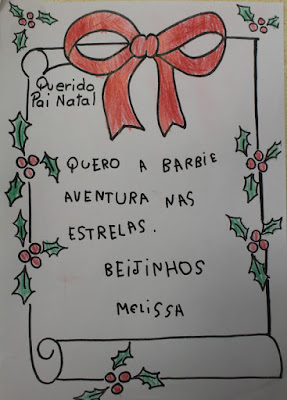 Querido
Pai Natal
QUERO A BARBIE
AVENTURA NAS
ESTRELAS.
BEIJINHOS
MELISSA